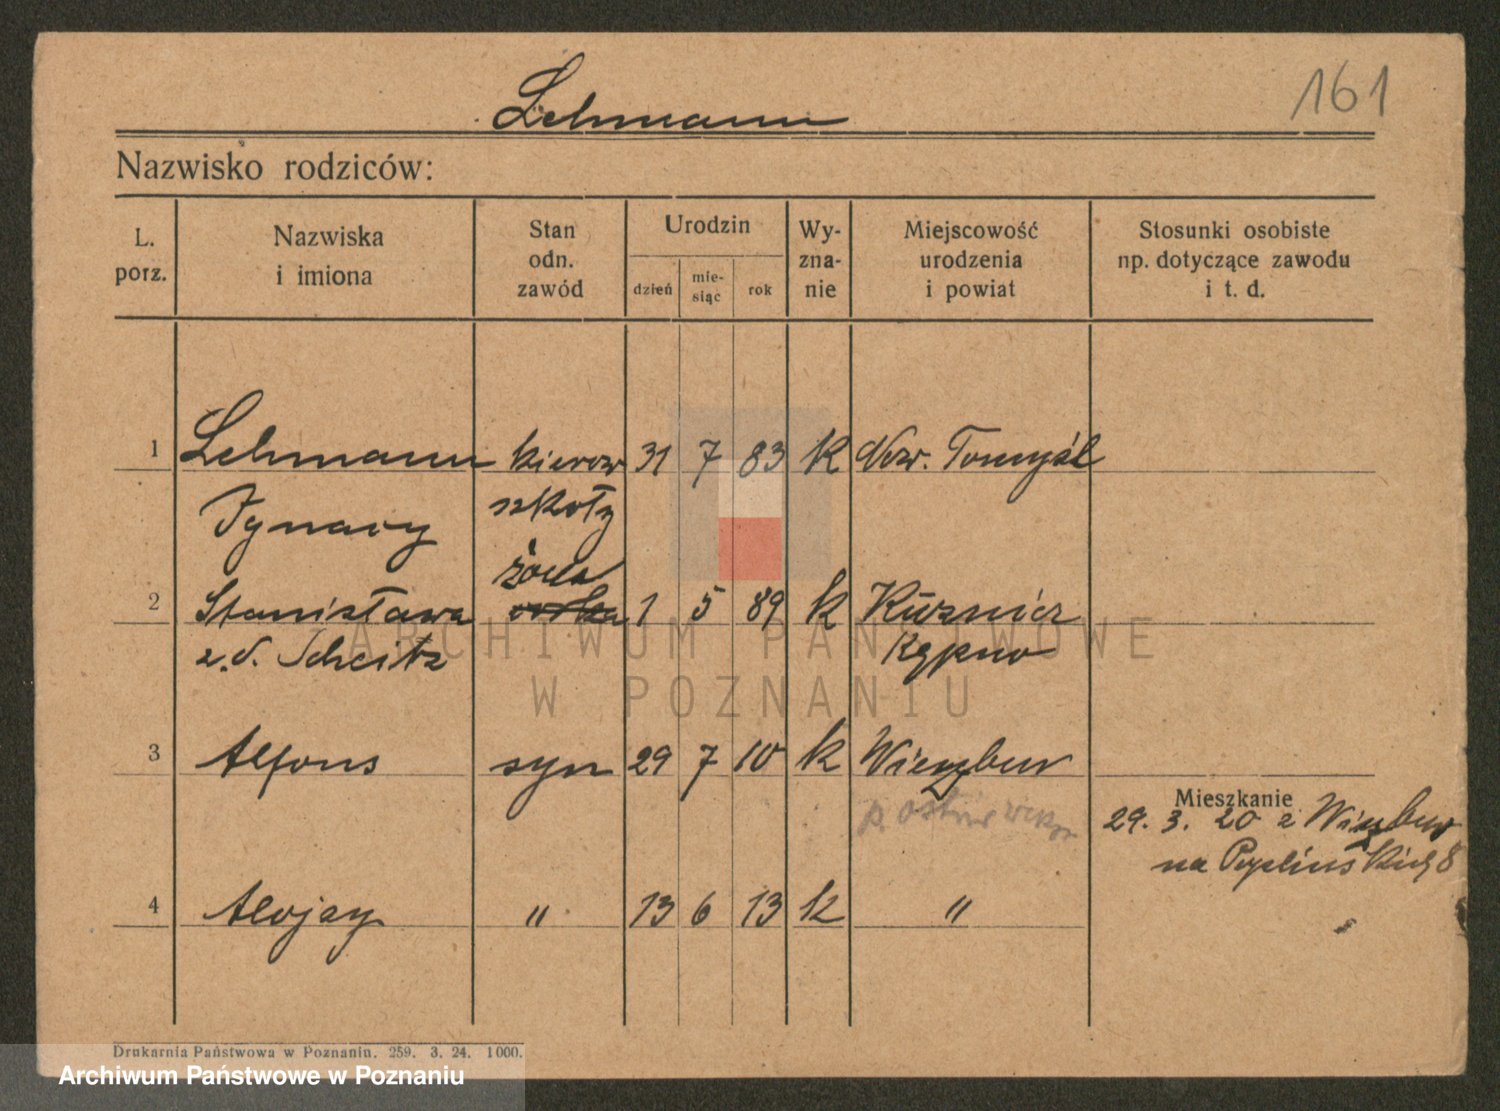 161
Lehmann
Nazwisko rodziców:
L. porz.
Nazwiska i imiona
Stan odn. zawód
Urodzin
dzień
mie-siąc
rok
Wy-zna-nie
Miejscowość urodzenia i powiat
Stosunki osobiste np. dotyczące zawodu i t. d.
1 Lehmann kierow 31 7 83 k Now. Tomyśl
Ignacy szkoły
żona
2 Stanisława 1 5 89 k Kuźnica
z.d. Scheitz Kępno
3 Alfons syn 29 7 10 k Wierzbno
Mieszkanie
p.
29. 3. 20 z Wierzbna
na Peplińskich 8
4 Alojzy " 13 6 13 k "
ARCHIWUM PAŃSTWOWE
W POZNANIU
Drukarnia Państwowa w Poznaniu. 259. 3. 24. 1000.
Archiwum Państwowe w Poznaniu